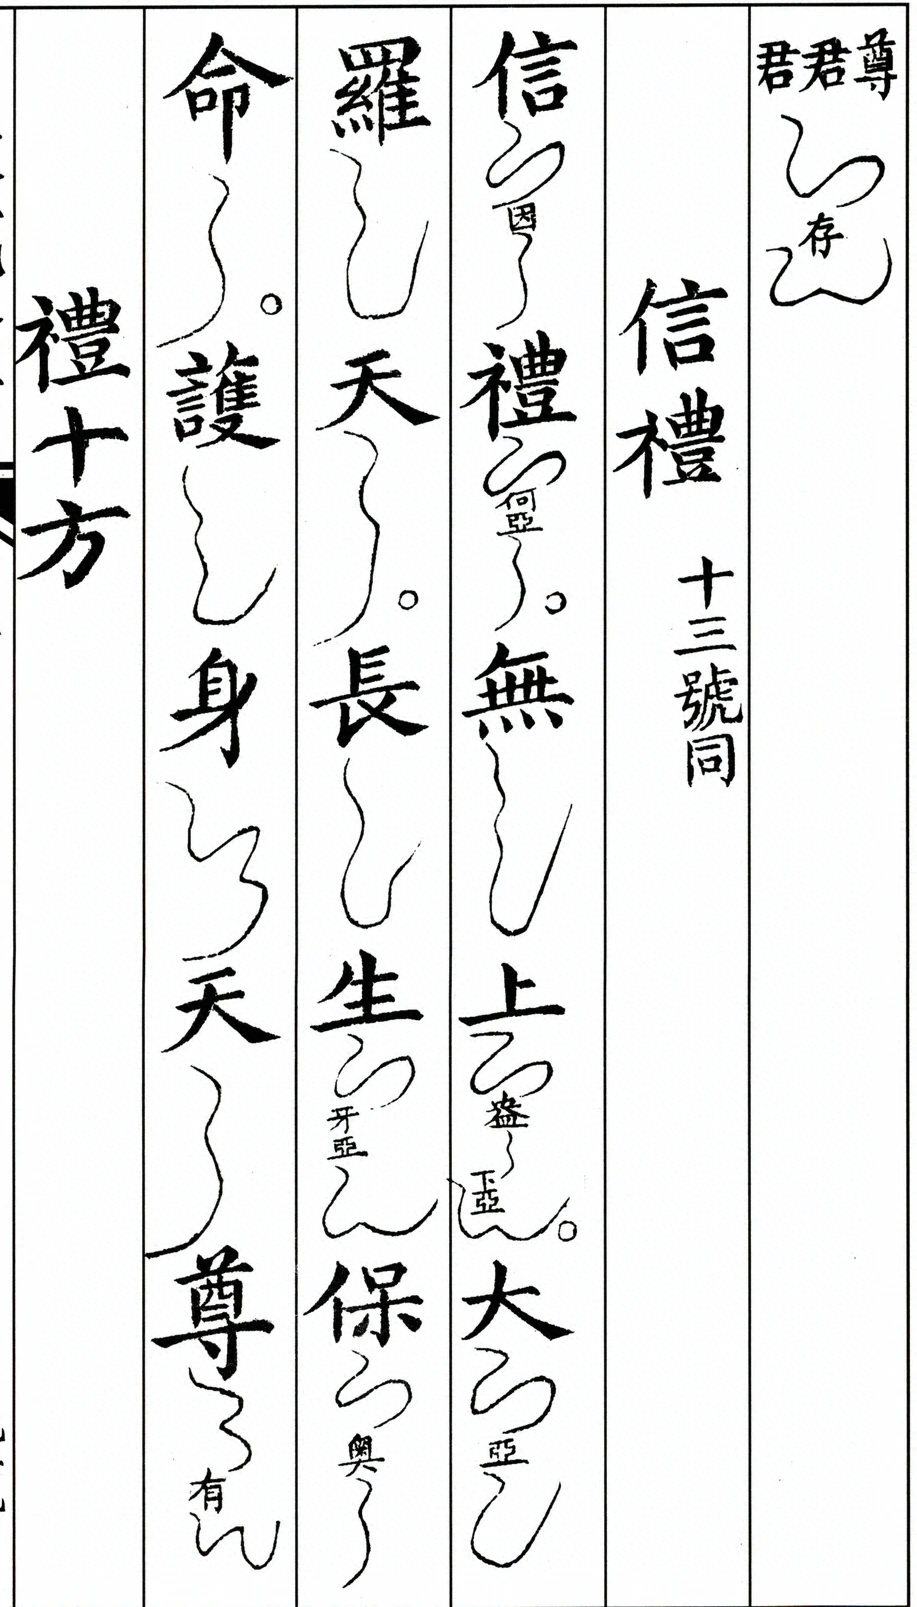 尊君君存
信禮 十三號同
信因禮何亞。無上盎下亞。大亞
羅天。長生牙亞保奧
命。護身天尊有
禮十方